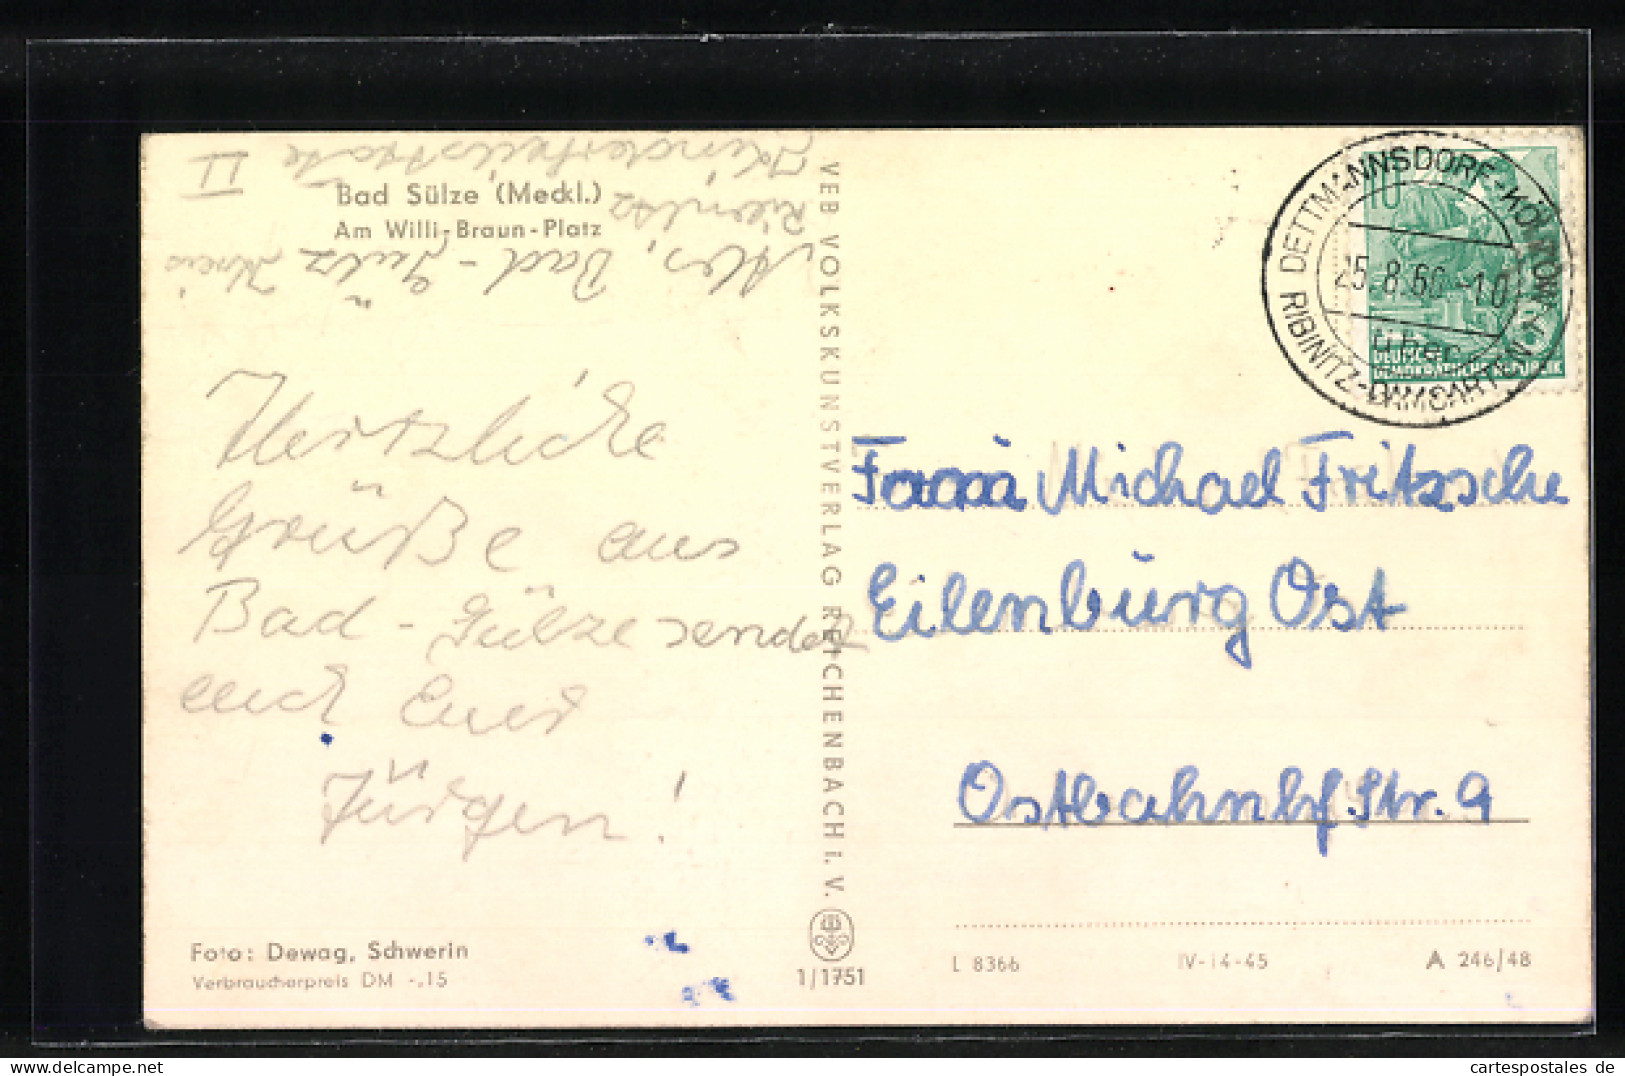 Bad Sülze (Meckl.)
Am Willi-Braun-Platz
Abs. Bad-Sülz Kreis
Ribnitz
Kinderheilstätte II
Hertzliche
Grüße aus
Bad-Sülze sendet
euch Euer
Jürgen!
Foto: Dewag, Schwerin
Verbraucherpreis DM -.15
VEB VOLKSKUNSTVERLAG REICHENBACH i. V.
1/1751
DETTMANNSDORF-KÖLZOW
über
RIBNITZ-DAMGARTEN
25.8.60.-10
10
DEUTSCHE
DEMOKRATISCHE REPUBLIK
Michael Fritzsche
Eilenburg Ost
Ostbahnhf.Str. 9
L 8366 IV-14-45 A 246/48
cartespostales de